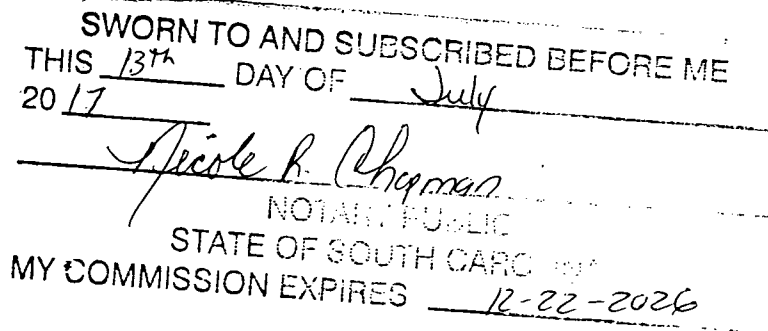 SWORN TO AND SUBSCRIBED BEFORE ME
THIS 13th DAY OF July
20 17
Nicole R. Chapman
NOTARY PUBLIC
STATE OF SOUTH CAROLINA
MY COMMISSION EXPIRES 12-22-2026